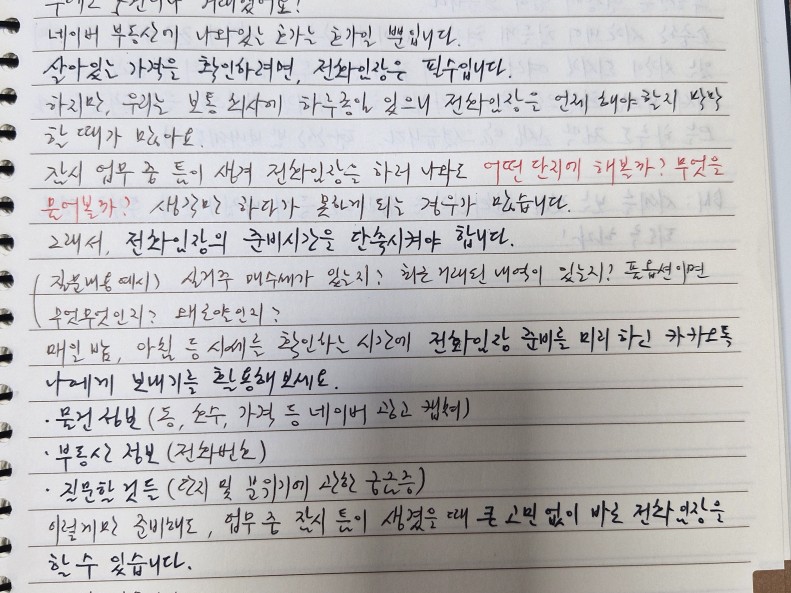 네이버 부동산에 나와있는 호가는 호가일 뿐입니다.
살아있는 가격을 확인하려면, 전화임장은 필수입니다.
하지만, 우리는 보통 회사에 하루종일 있으니 전화임장을 언제 해야할지 막막
할 때가 많아요.
잠시 업무 중 틈이 생겨 전화임장을 하러 나와도 어떤 단지에 해볼까? 무엇을
물어볼까? 생각만 하다가 못하게 되는 경우가 많습니다.
그래서, 전화임장의 준비시간을 단축시켜야 합니다.
(질문내용 예시) 실거주 매수세가 있는지? 최근 거래된 내역이 있는지? 풀옵션이면
무엇무엇인지? 왜 로얄인지?
매일 밤, 아침 등 시세를 확인하는 시간에 전화임장 준비를 미리 하신 카카오톡
나에게 보내기를 활용해보세요.
· 물건 정보 (동, 호수, 가격 등 네이버 광고 캡쳐)
· 부동산 정보 (전화번호)
· 질문할 것들 (단지 및 분위기에 관한 궁금증)
이렇게만 준비해도, 업무 중 잠시 틈이 생겼을 때 큰 고민 없이 바로 전화임장을
할 수 있습니다.